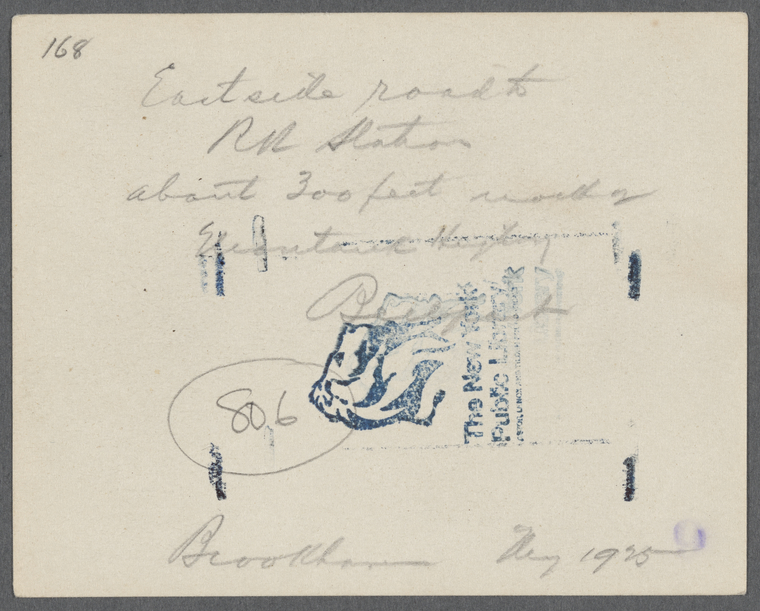 168
East side road to
RR Station
about 300 feet north of
Highway
Bellport
The New York
Public Library
80.6
Brookhaven May 1925